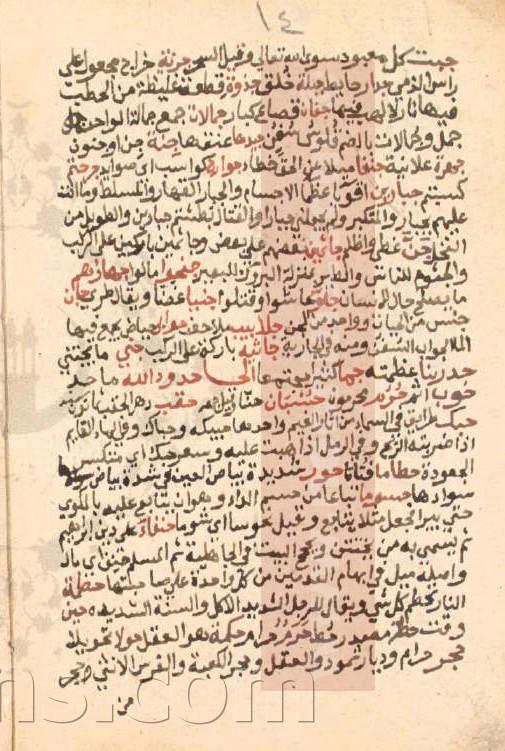 ١٤
جبت كل معبود سوى الله تعالى وقيل السحر جزية خراج مجعول على
راس الذمى جدار حايط جبلة خلق جذوة قطعة غليظة من الحطب
فيها نار لا لهب فيها جفان قصاع كبار جمالات جمع جمالة الواحد
جمل وجمالات بالضم قلوس سفن جيدها عنقها جنة جن او جنون
جهرة علانية جنفا ميلا عن الحق خطا جوارح كواسب اى صوايد جرحتم
كسبتم جبارين اقويا عظما الاجسام والجبار القهار والمسلط وما انت
عليهم بجبار والمتكبر ولم يجعلنى جبارا والقتال بطشتم جبارين والطويل من
النخل جن غطى واظلم جاثمين بعضهم على بعض وجاثمين باركين على الركب
والجثوم للناس والطير بمنزلة البروك للبعير جنحوا مالوا جهازهم
ما يصلح حال الانسان جاسوا عاثوا وقتلوا جنيا غضا ويقال طرى جان
جنس من الحيات وواحد من الجن جلابيب ملاحف جواب حياض يجمع فيها
الماء الجوارى السفن ومنه فى الجارية جاثية باركة على الركب جنى ما يجتنى
جد ربنا عظمته جما كثيرا مجتمعا الحا حدود الله ما حد
حوبا اثم حرم محرمون حسبان حساب حقب دهر الحقب ثمانون سنة
حبك طرايق فى السما من اثار الغيم واحدها حبيكة وحباك وفى الماء القايم
اذا ضربته الريح وفى الرمل اذا هبت عليه وشعر حبك اى متكسر
الجعودة حطاما فتاتا حور شديدة بياض العين فى شدة بياض
سوادها حسوما تباعا من حسم الداء وهو ان يتابع عليه بالمكوى
حتى يبرا فجعل مثلا يتابع وقيل نحوسا اى شوما حنفاء على دين ابراهيم
ثم يسمى به من يختتن ويحج البيت فى الجاهلية ثم المسلم حنيف اى مال
واصله ميل فى ابهام القدمين من كل واحدة على صاحبتها حطمة
النار تحطم كل شى ويقال للرجل الشديد الاكل والسنة الشديدة حين
وقت حطة مصدر حط حرم حرام حكمة هو العقل حولا تحويلا
حجر حرام وديار ثمود والعقل وحجر الكعبة والفرس الانثى وحجر
من
ns.com